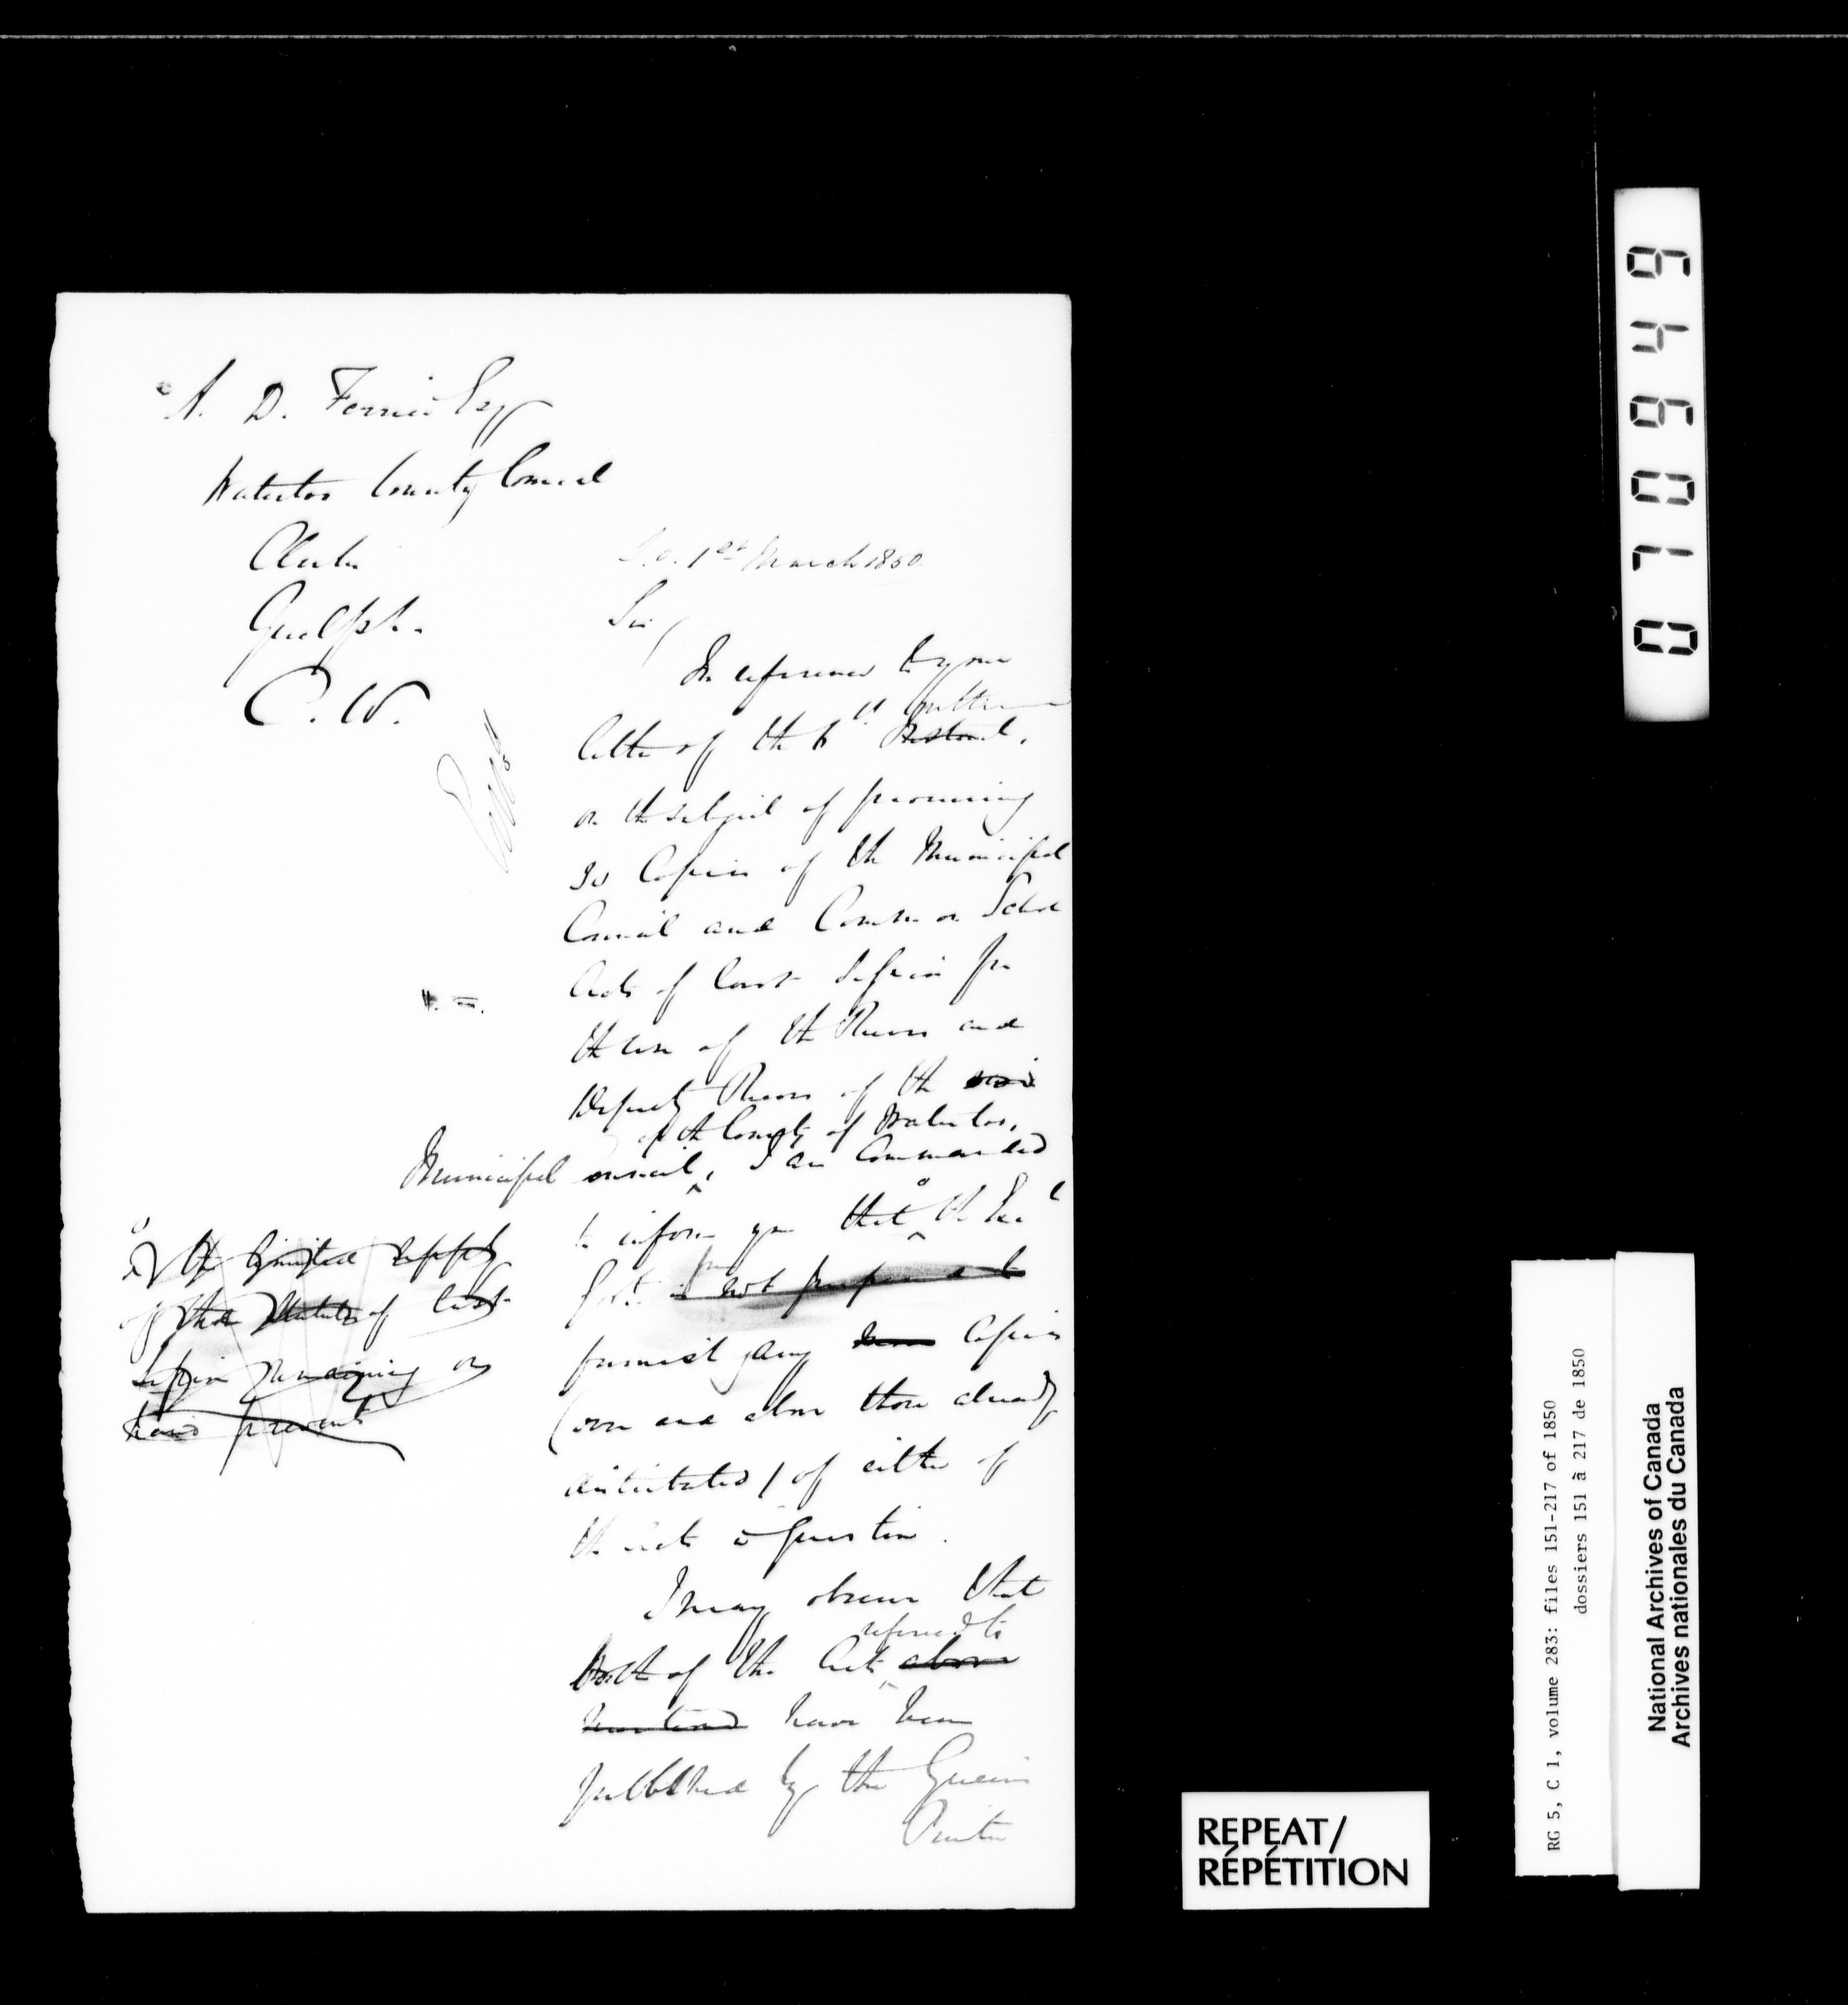 A. D. Ferrier Esq
Waterloo County Council
Clerk
Guelph.
C. W.
S.O. 1st March 1850
Sir,
In reference to your
letter of the 6th Instant, Ultimo
on the subject of procuring
30 Copies of the Municipal
Council and Common School
Acts of last Session for
the use of the Reeves and
Deputy Reeves of the said
of the County of Waterloo,
Municipal ouncil, I am Commanded
to inform you that the Exe
Govt is not prepared to
furnish any more Copies
(over and above those already
distributed) of either of
the Acts in question.
I may observe that
referred to
both of the Acts above
mentioned have been
published by the Queen's
Printer
the limited supply
of the Statutes of last
Session remaining on
hand prevents
049017
0170949
RG 5, C 1, volume 283: files 151-217 of 1850
dossiers 151 à 217 de 1850
National Archives of Canada
Archives nationales du Canada
REPEAT/
RÉPÉTITION